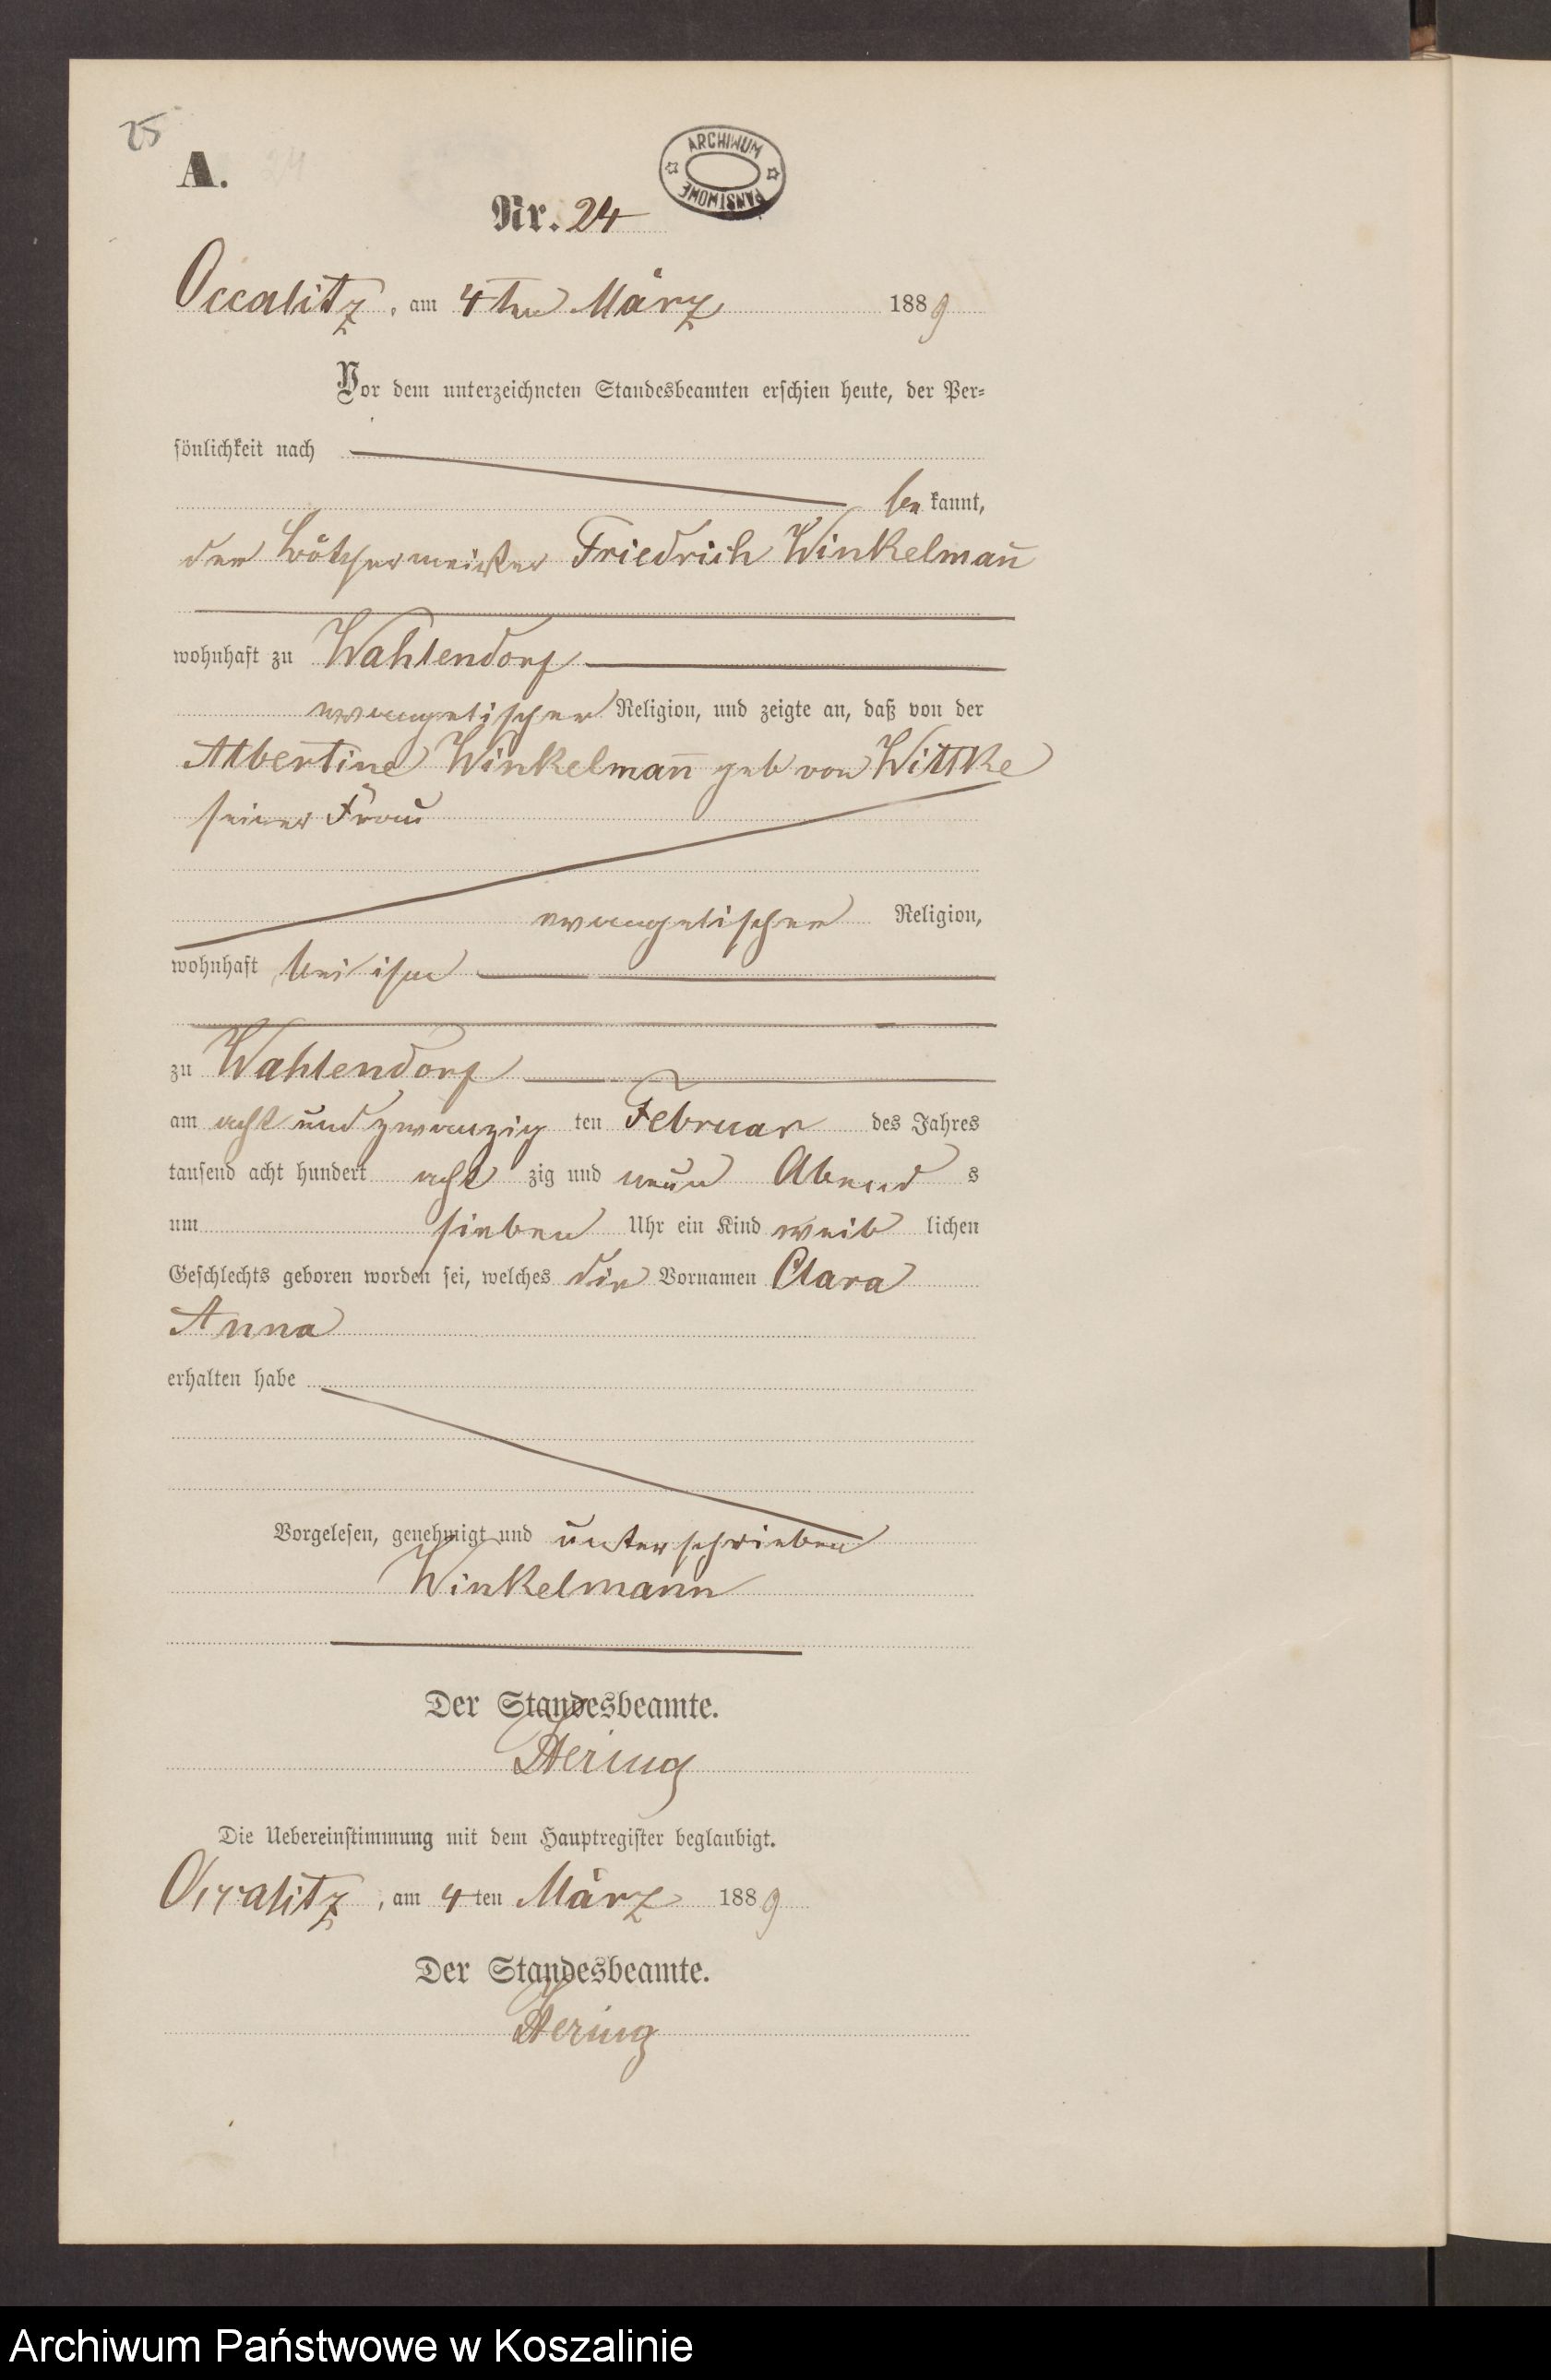 25
A.
ARCHIWUM PAŃSTWOWE
24
Nr. 24
Occalitz, am 4ten März 1889
Vor dem unterzeichneten Standesbeamten erschien heute, der Per=
sönlichkeit nach
be kannt,
der Böttchermeister Friedrich Winkelman̄
wohnhaft zu Wahlendorf
evangelischer Religion, und zeigte an, daß von der
Albertine Winkelman̄ geb von Wittke
seiner Frau
evangelischer Religion,
wohnhaft bei ihm
zu Wahlendorf
am acht und zwanzig ten Februar des Jahres
tausend acht hundert acht zig und neun Abend s
um sieben Uhr ein Kind weib lichen
Geschlechts geboren worden sei, welches die Vornamen Clara
Anna
erhalten habe
Vorgelesen, genehmigt und unterschrieben
Winkelmann
Der Standesbeamte.
Hering
Die Uebereinstimmung mit dem Hauptregister beglaubigt.
Occalitz, am 4ten März 1889
Der Standesbeamte.
Hering
Archiwum Państwowe w Koszalinie